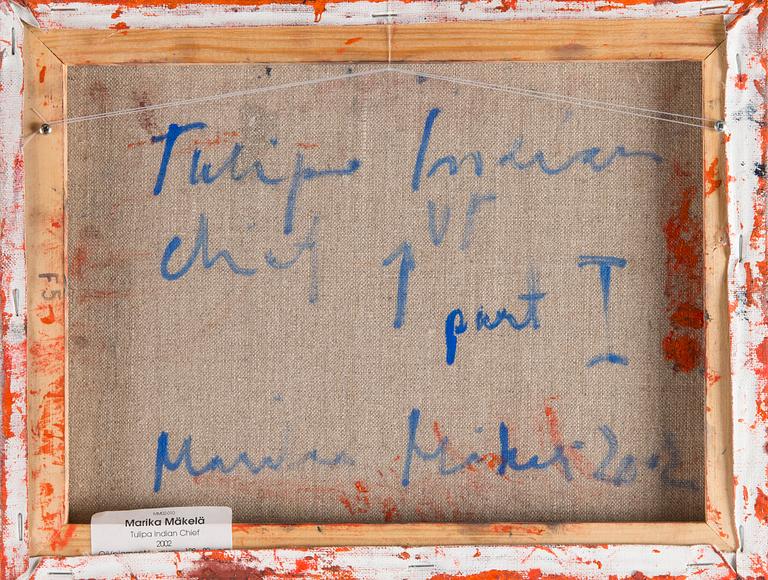 Tulipa Indian
chief
↑ UP
part I
Marika Mäkelä 2002
F5
MM02-010
Marika Mäkelä
Tulipa Indian Chief
2002